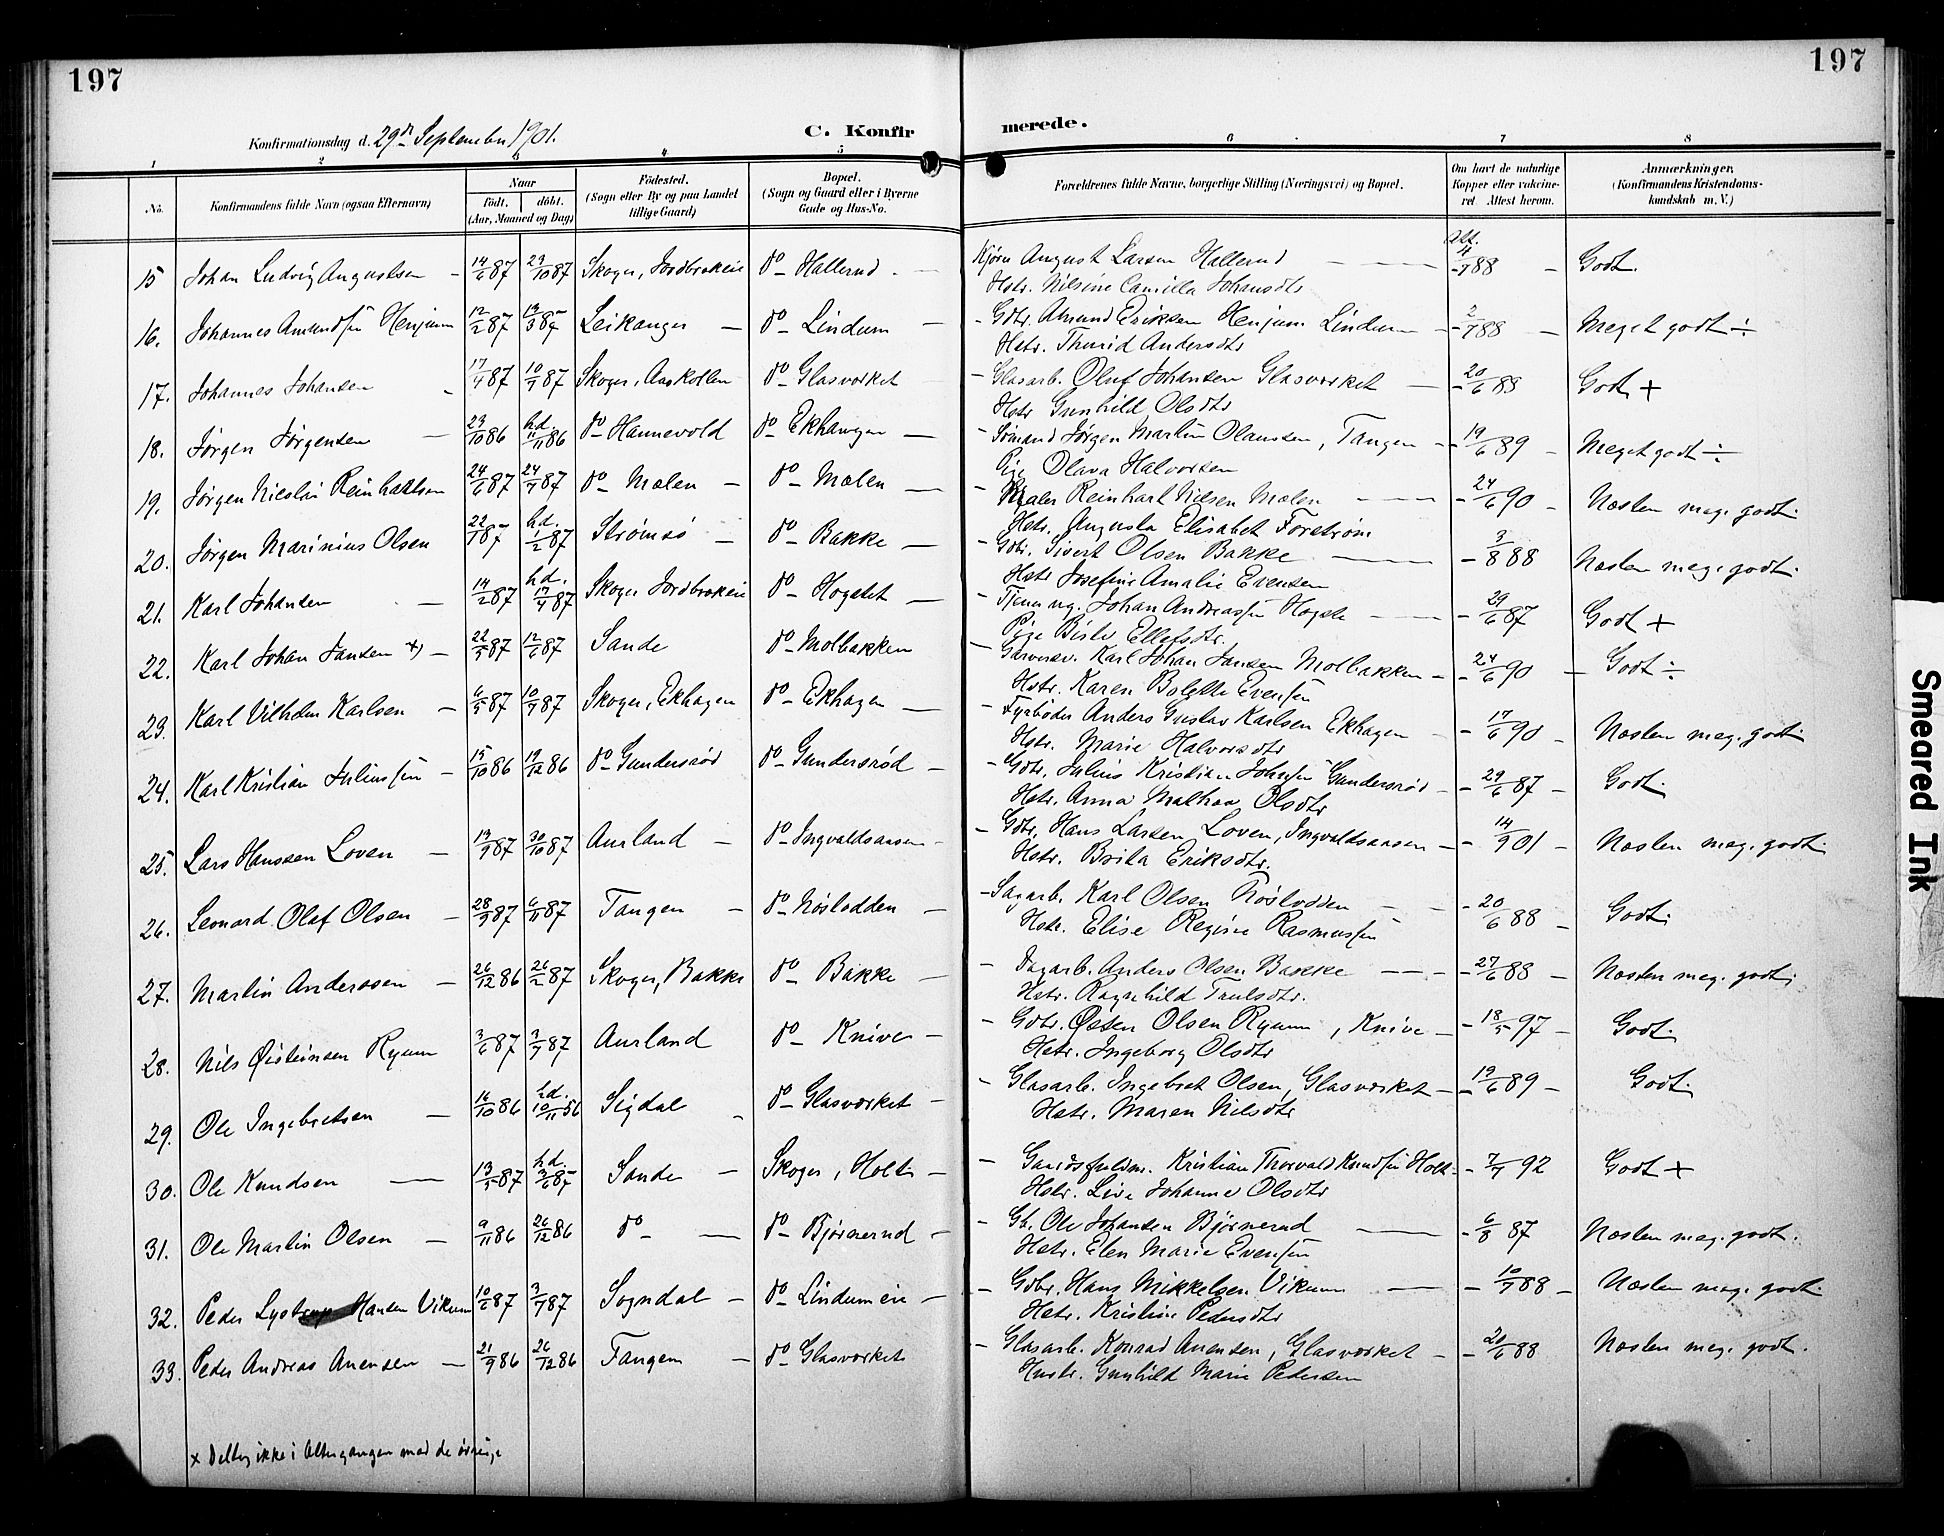 197
197
Konfirmationsdag d. 29de September 1901.
C. Konfir
merede.
1 2 3 4 5 6 7 8
No.
Konfirmandens fulde Navn (ogsaa Efternavn)
Naar
födt. döbt.
(Aar, Maaned og Dag)
Födested.
(Sogn eller By og paa Landet
tillige Gaard)
Bopæl.
(Sogn og Gaard eller i Byerne
Gade og Hus-No.
Forældrenes fulde Navne, borgerlige Stilling (Næringsvei) og Bopæl.
Om havt de naturlige
Kopper eller vakcine-
ret Attest herom.
Anmærkninger.
(Konfirmandens Kristendoms-
kundskab m. V.)
15 Johan Ludvig Augustsen - 14/6 87 23/10 87 Skoger, Jordbrækeie do - Hallerud - Kjørs August Larsen Hallerud - Att. 4/7 88 - Godt.
Hstr. Nilsine Camilla Johansdtr
16. Johannes Amundsen Henjum 12/2 87 13/3 87 Leikanger - do - Lindum - Gdbr. Amund Eriksen Henjum Lindum - 2/7 88 - Meget godt ÷
Hstr. Thurid Andersdtr
17. Johannes Johansen - 17/4 87 10/7 87 Skoger, Aaskollen do - Glasværket - Glasarb. Oluf Johansen Glasværket - 20/6 88 Godt +
Hstr Gunhild Olsdtr
18. Jørgen Jørgensen - 23/10 86 hd. 11/11 86 do - Hannevold do - Ekhaugen - Sømand Jørgen Martin Olaussen, Tangen - 19/6 89 - Meget godt ÷
Pige Olava Halvorsen
19. Jørgen Nicolai Reinhartsen 24/6 87 24/7 87 do - Mælen - do - Mælen - Maler Reinhart Nilsen Mælen - 24/6 90 - Næsten meg. godt.
Hstr. Augusta Elisabet Forstrøm
20. Jørgen Marinius Olsen 22/1 87 hd. 1/2 87 Strømsø - do - Bakke - Gdbr. Sivert Olsen Bakke - 3/8 88 Næsten meg. godt.
Hstr Josefine Amalie Evensen
21. Karl Johansen - 14/2 87 hd. 17/4 87 Skoger Jordbrækeie do - Hogstet - Tjener ug. Johan Andreassen Hogste - 29/6 87 Godt +
Pige Birte Ellefsdtr.
22. Karl Johan Jansen *) - 22/5 87 12/6 87 Sande do - Molbakken - Garversv. Karl Johan Jansen Molbakken - 24/6 90 - Godt ÷
Hstr. Karen Bolette Evensen
23. Karl Vilhelm Karlsen - 6/5 87 10/7 87 Skoger, Ekhagen do - Ekhagen - Fyrbøder Anders Gustav Karlsen Ekhagen - 17/6 90 - Næsten meg. godt.
Hstr. Marie Halvorsdtr
24. Karl Kristian Juliussen - 15/10 86 19/12 86 do - Gundersrød do - Gundersrød - Gdbr. Julius Kristian Johnsen Gundersrød - 29/6 87 - Godt.
Hstr. Anna Mathea Olsdtr
25. Lars Hanssen Loven - 13/9 87 30/10 87 Aurland - do - Ingvaldsaasen - Gdbr. Hans Larsen Loven, Ingvaldsaasen - 14/9 01 - Næsten meg. godt.
Hstr. Brita Eriksdtr.
26. Leonard Olaf Olsen - 28/9 87 6/11 87 Tangen - do - Nøslodden - Sagarb. Karl Olsen Nøslodden - 20/6 88 - Godt.
Hstr. Elise Regine Rasmussen
27. Martin Anderssen - 26/12 86 26/2 87 Skoger, Bakke do - Bakke - Dagarb. Anders Olsen Bakke - 27/6 88 - Næsten meg. godt.
Hstr. Ragnhild Trulsdtr.
28. Nils Øisteinsen Ryum 3/6 87 3/7 87 Aurland do - Knive - Gdbr. Østen Olsen Ryum, Knive - 18/5 97 - Godt.
Hstr. Ingeborg Olsdtr
29. Ole Ingebretsen - 16/10 86 hd. 10/11 56 Sigdal - do - Glasværket - Glasarb. Ingebret Olsen, Glasværket - 19/6 89 - Godt.
Hstr. Maren Nilsdtr
30. Ole Knudsen - 13/5 87 hd. 3/6 87 Sande - Skoger, Holt - Gaardsfuldm. Kristian Thorvald Knudsen Holt - 7/7 92 Godt +
Hstr. Live Johanne Olsdtr
31. Ole Martin Olsen - 9/11 86 26/12 86 do - do - Bjørnerud - Gb. Ole Johansen Bjørnerud - 6/8 87 Næsten meg. godt.
Hstr. Elen Marie Evensen
32. Peder Hansen Vikum 10/6 87 3/7 87 Sogndal - do - Lindumeie - Gdbr. Hans Mikkelsen Vikum - 10/7 88 - Næsten meg. godt.
Hstr. Kristine Pedersdtr
33. Peder Andreas Anensen - 21/9 86 26/12 86 Tangen - do - Glasværket - Glasarb. Konrad Anensen, Glasværket - 20/6 88 Næsten meg. godt.
Hustr. Gunhild Marie Pedersen
x Deltog ikke i Altergangen med de øvrige
Smeared Ink